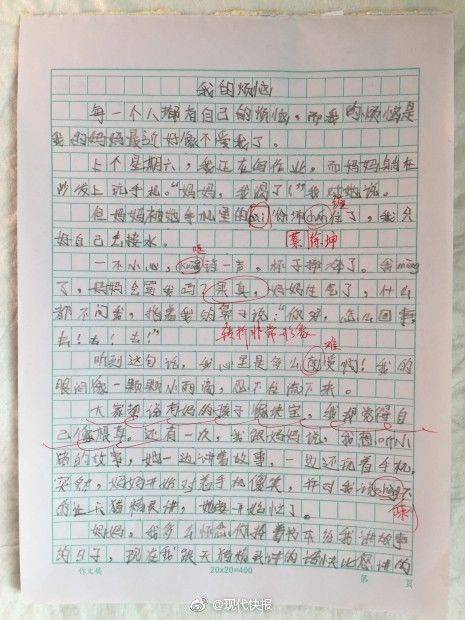 我的烦恼
每一个人都有自己的烦恼，而我的烦恼是
我的妈妈最近好像不爱我了。
上个星期六，我正在写作业，而妈妈躺在
沙发上玩手机。“妈妈，我渴了！”我对她说。
但妈妈被她手机里的
住了，我只
缠
好自己去接水。
蔡徐坤
一不小心，
一声，杯子摔碎了。我
了，妈妈会骂我吗？果真，妈妈生气了，什么
都不问我，指着我的鼻子说：“你呀，怎么回事，
去！去！去！”
转折非常形象
难
听到这句话，我心里是多么
受啊！我的
眼泪像一颗颗小雨滴，忍不住流下来。
大家都说有妈的孩子像块宝，我却觉得自
己像根草。还有一次，我跟妈妈说，我想听小
猪的故事，她一边讲着故事，一边还看着手机，
突然，妈妈开始对着手机傻笑，并对我说
不
陈
天猫精灵讲，她
开始忙了。
妈妈，我多么怀念你捧着书本给我讲故事
的日子，现在我跟天猫精灵讲的话
比您讲的
作文稿
20×20=400
第 页
@现代快报